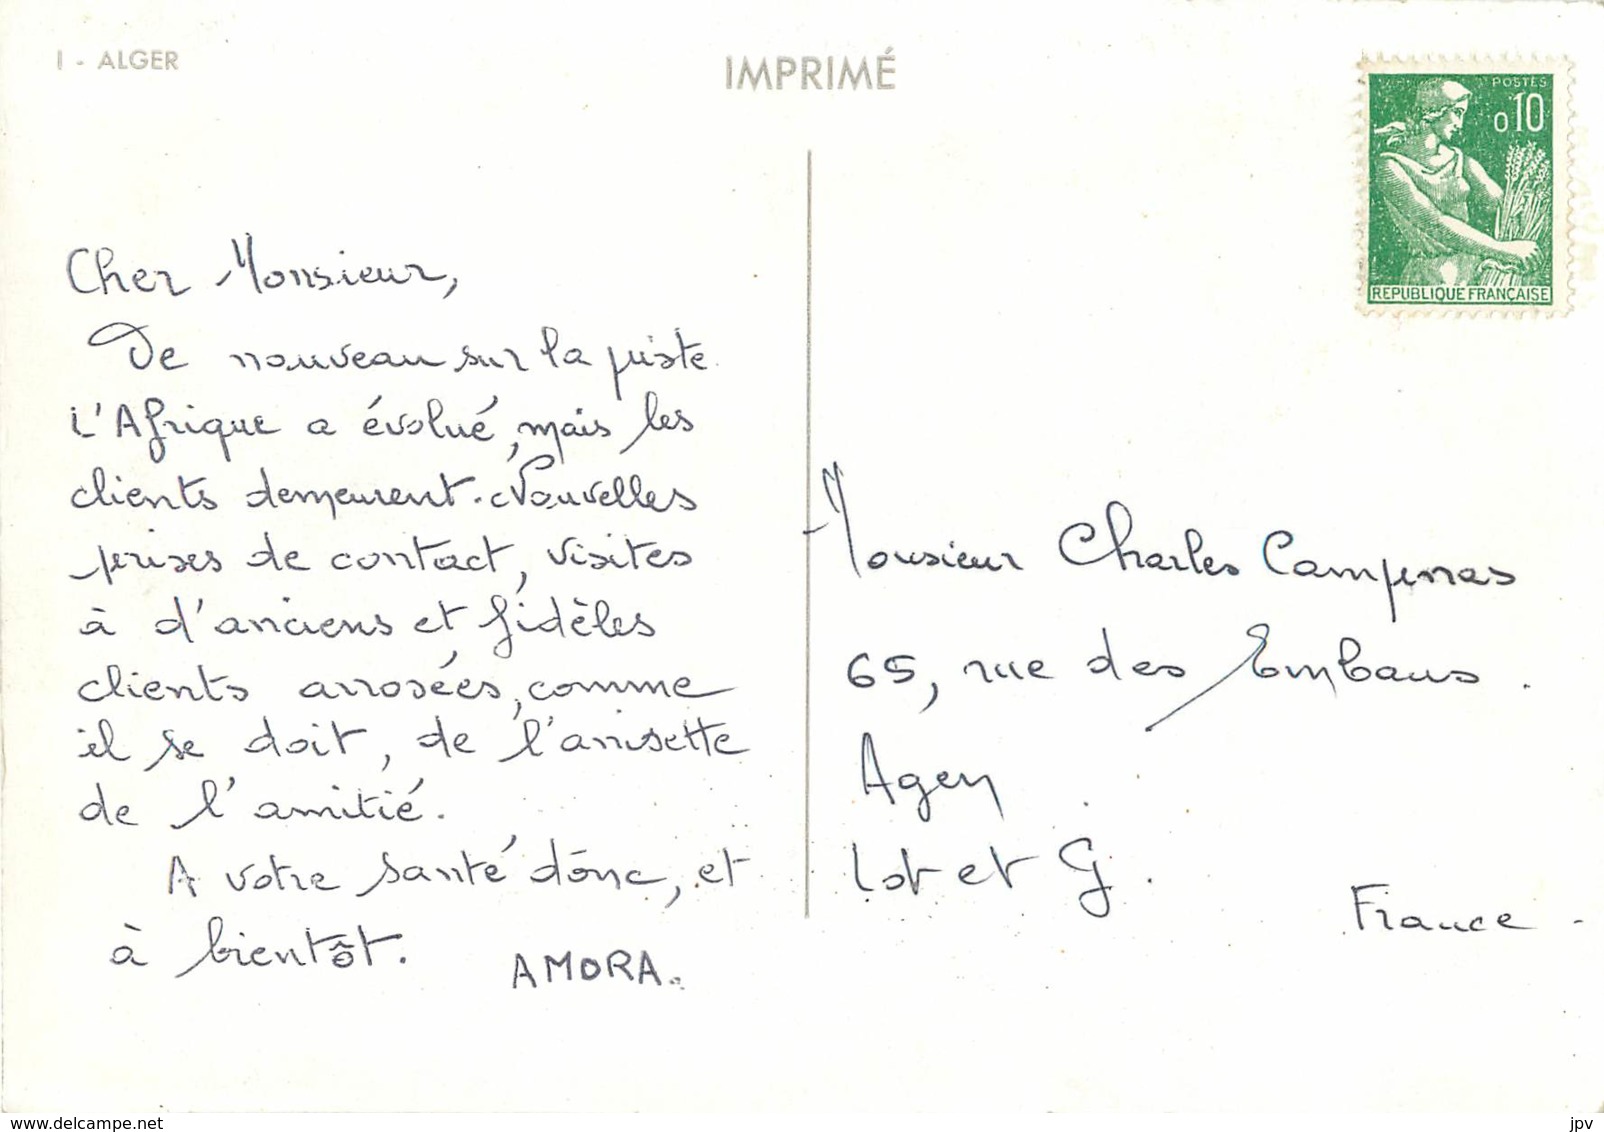 I - ALGER
IMPRIMÉ
POSTES
0,10
REPUBLIQUE FRANÇAISE
Cher Monsieur,
De nouveau sur la piste.
L'Afrique a évolué, mais les
clients demeurent. Nouvelles
prises de contact, visites
à d'anciens et fidèles
clients arrosées, comme
il se doit, de l'anisette
de l'amitié.
A votre santé donc, et
à bientôt.
AMORA.
Monsieur Charles Campenas
65, rue des Embans.
Agen
Lot et G.
France.
delcampe.net
jpv